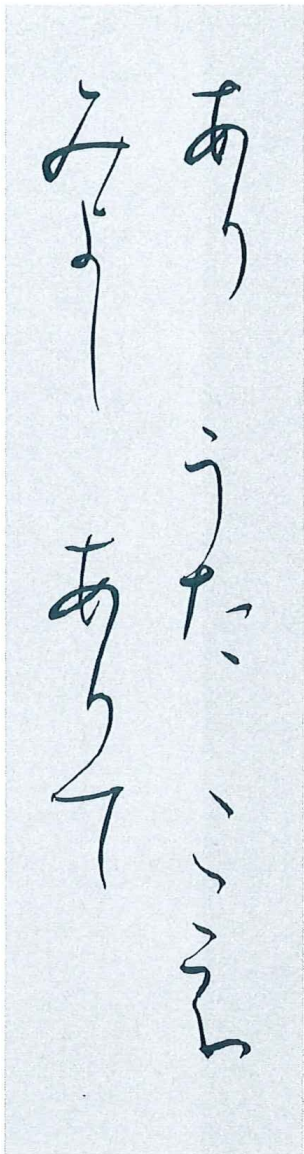 あり うた こゑ
みよし ありて